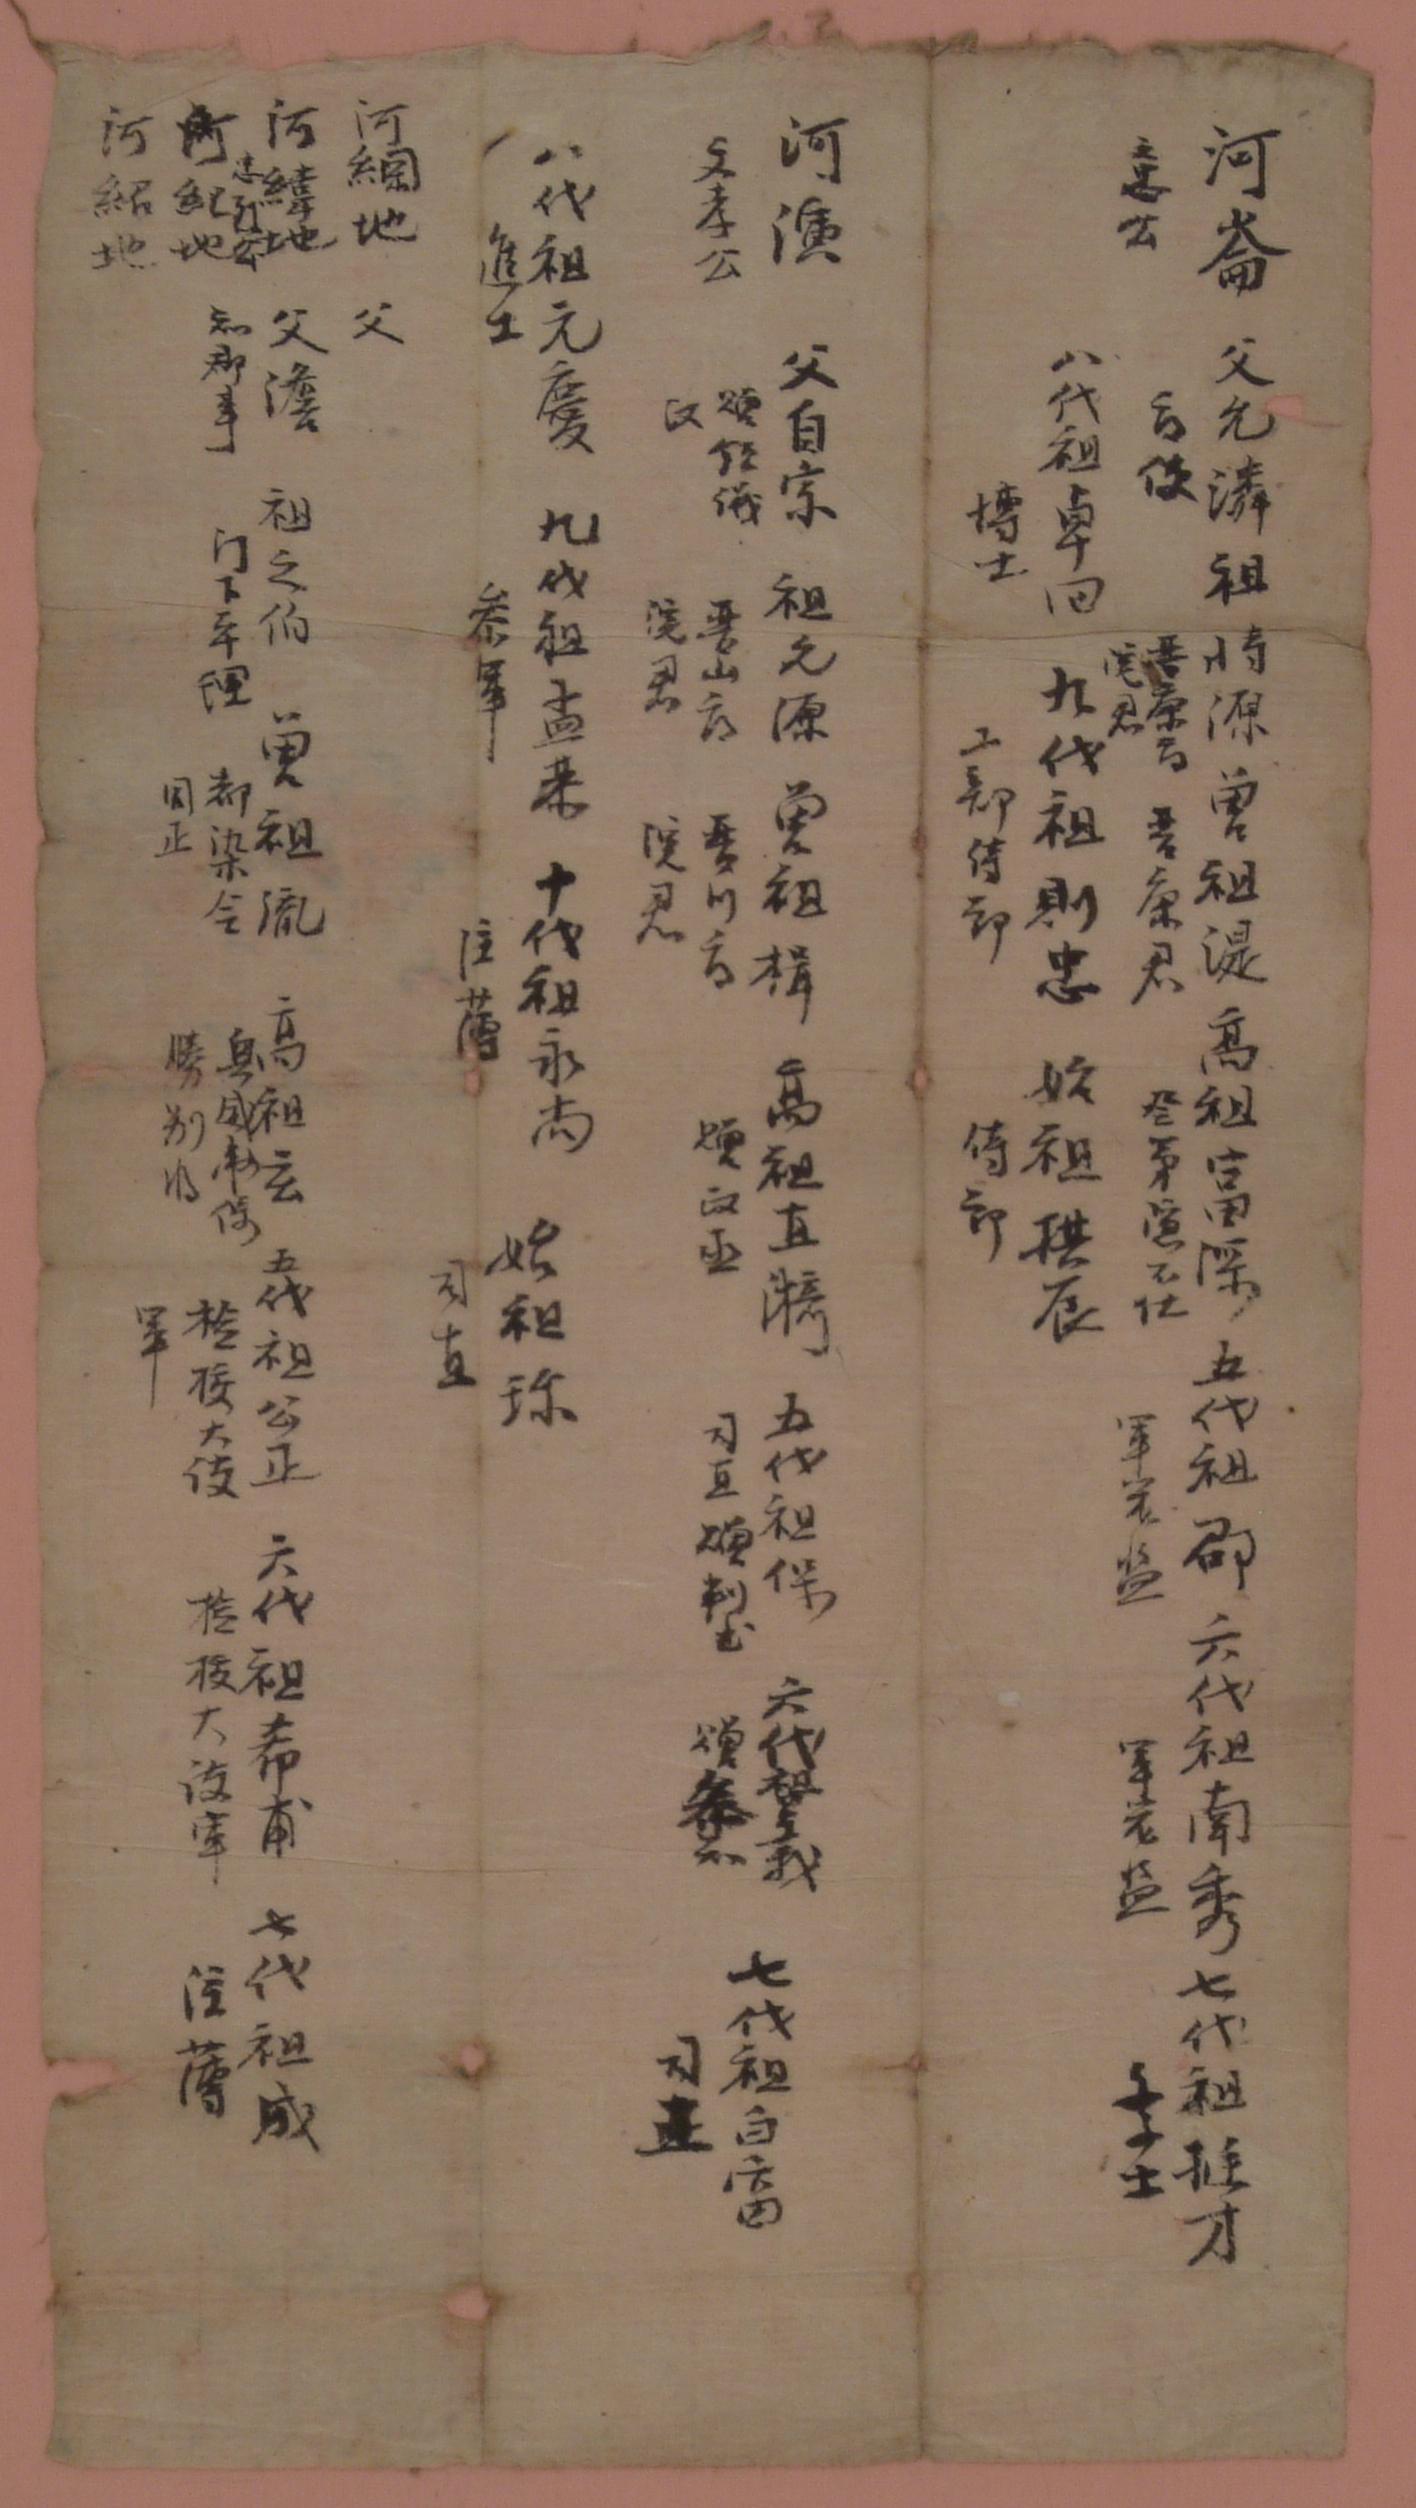 河崙 父允潾 祖恃源 曾祖湜 高祖富深 五代祖邵 六代祖南秀 七代祖挺才
文忠公 府使 晋康府院君 晋康君 登第隱不仕 軍器監 軍器監 學士
八代祖卓回 九代祖則忠 始祖拱辰
博士 工部侍郎 侍郎
河演 父自宗 祖允源 曾祖楫 高祖直漪 五代祖保 六代祖義 七代祖自富
文孝公 贈領議政 晋山府院君 晋川府院君 贈政丞 司直贈判書 贈參 司直
八代祖元慶 九代祖孟恭 十代祖永尚 始祖珎
進士 參軍 注薄 司直
河綱地 父
河緯地 父澹 祖之伯 曾祖胤 高祖玄 五代祖公正 六代祖希甫 七代祖成
忠烈公 知郡事 门下平理 都染令同正 別將 檢校大使軍 檢校大護軍 注薄
河紀地
河紹地